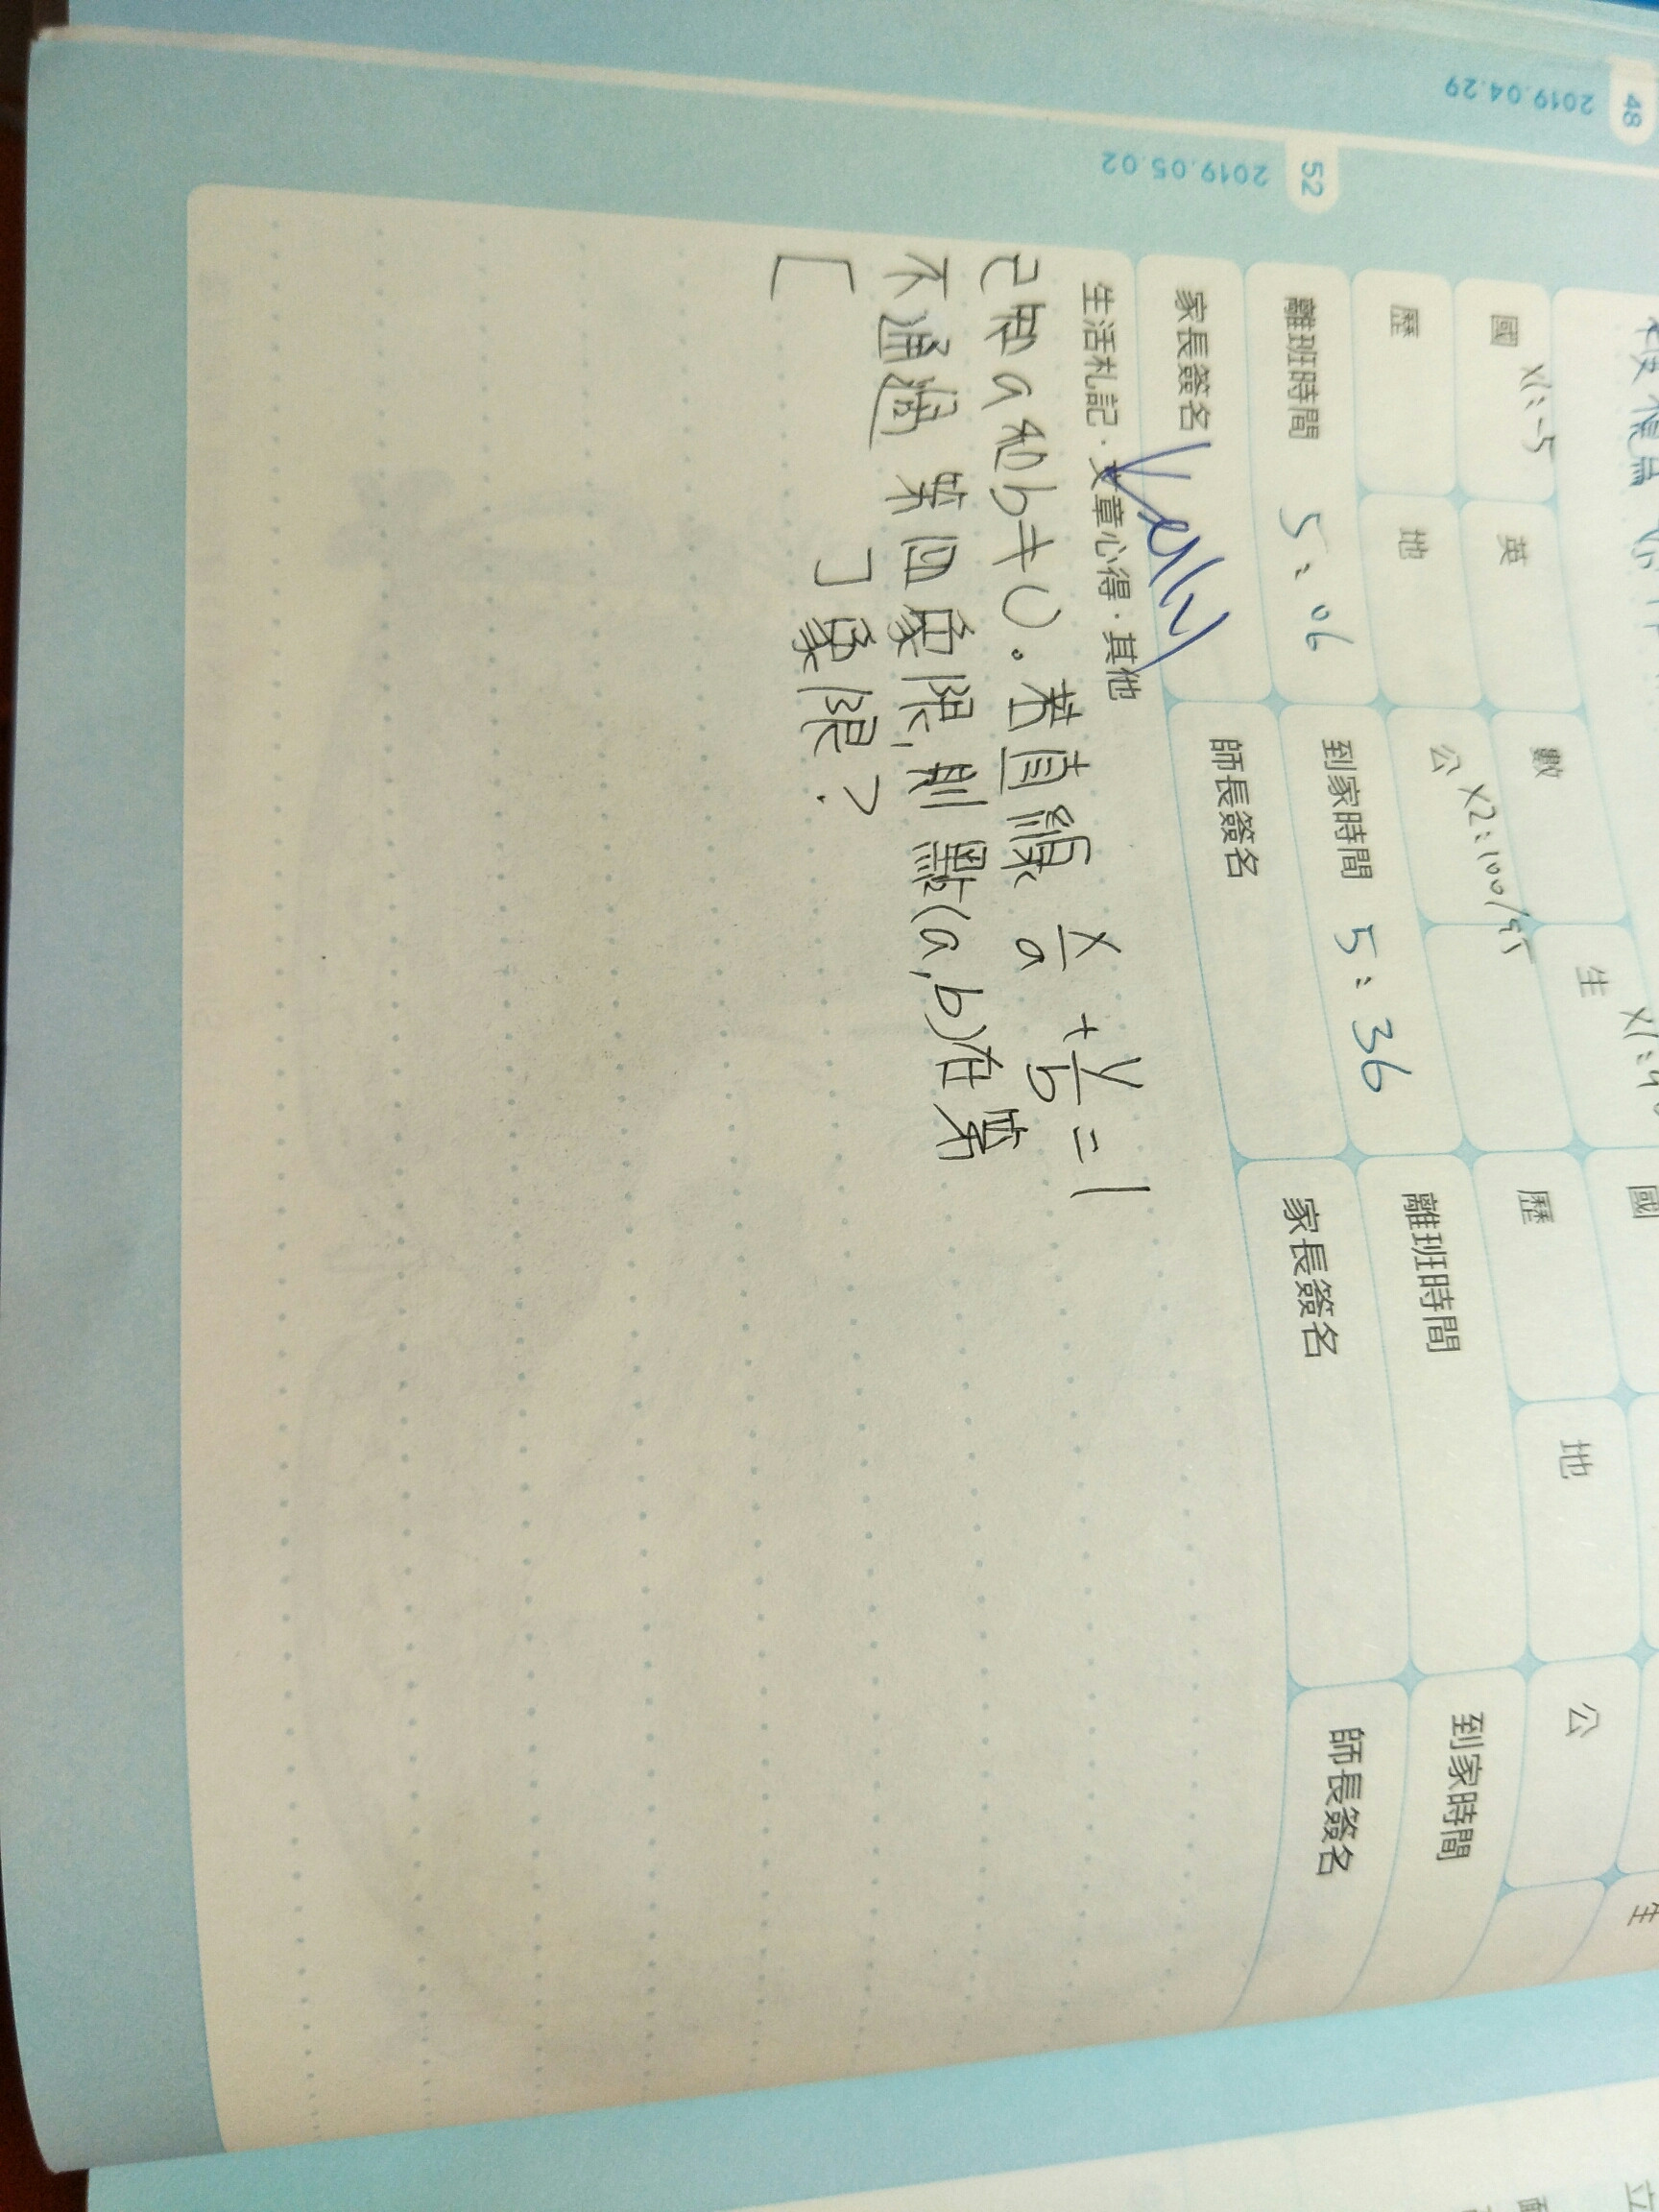 48
2019.04.29
52
2019.05.02
x1:-5
國 英 數 生
國
歷 地 公 x2:100/95
歷 地 公 生
離班時間 5:06 到家時間 5:36
離班時間 到家時間
家長簽名 師長簽名
家長簽名 師長簽名
生活札記·文章心得·其他
已知a和b≠0。若直線 x/a + y/b = 1
不通過 第四象限,則 點(a,b)在第
[ ]象限?